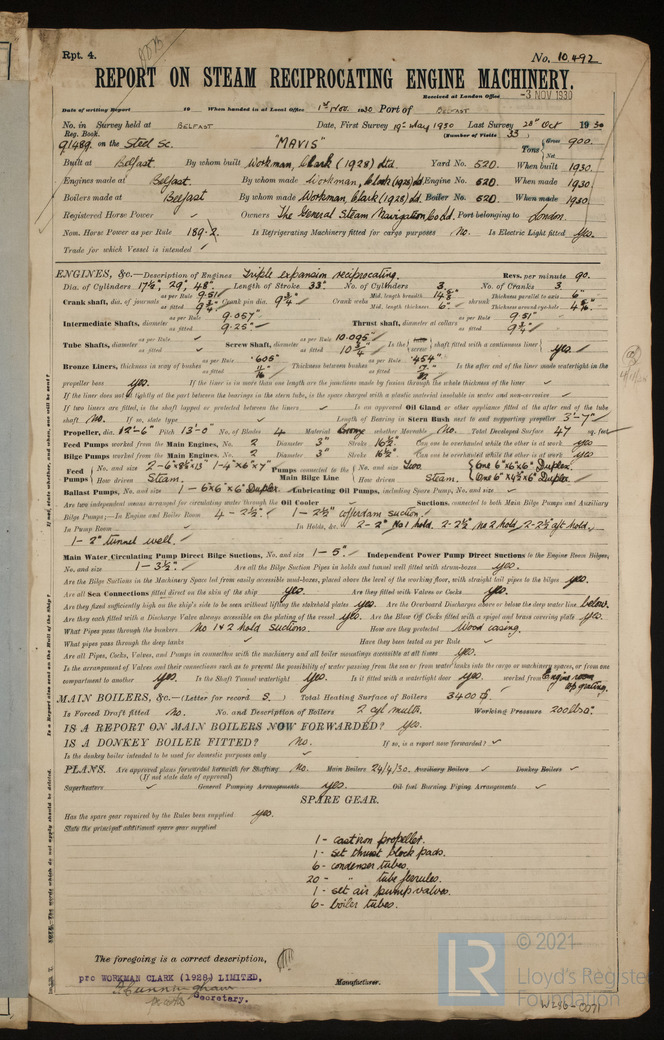 Rpt. 4.
No. 10,492
REPORT ON STEAM RECIPROCATING ENGINE MACHINERY.
Received at London Office -3 NOV 1930
Date of writing Report 19 When handed in at Local Office 1st Nov. 1930 Port of BELFAST
No. in Survey held at BELFAST Date, First Survey 19th May 1930 Last Survey 28th Oct 1930
Reg. Book. (Number of Visits 33)
91489 on the Steel Sc. "MAVIS" Tons Gross 900. Net
Built at Belfast By whom built Workman, Clark (1928) Ltd. Yard No. 520 When built 1930.
Engines made at Belfast. By whom made Workman, Clark (1928) Ltd Engine No. 520. When made 1930.
Boilers made at Belfast By whom made Workman, Clark (1928) Ltd. Boiler No. 520 When made 1930.
Registered Horse Power Owners The General Steam Navigation Co Ld. Port belonging to London.
Nom. Horse Power as per Rule 189.2 Is Refrigerating Machinery fitted for cargo purposes No. Is Electric Light fitted Yes.
Trade for which Vessel is intended
ENGINES, &c.—Description of Engines Triple expansion reciprocating. Revs. per minute 90.
Dia. of Cylinders 17½", 29", 48" Length of Stroke 33" No. of Cylinders 3 No. of Cranks 3
Crank shaft, dia. of journals as per Rule 9.51" as fitted 9¾" Crank pin dia. 9¾" Crank webs Mid. length breadth 14⅝" Mid. length thickness 6" shrunk Thickness parallel to axis 6" Thickness around eye-hole
Intermediate Shafts, diameter as per Rule 9.057" as fitted 9.25" Thrust shaft, diameter at collars as per Rule 9.51" as fitted 9¾"
Tube Shafts, diameter as per Rule as fitted Screw Shaft, diameter as per Rule 10.095" as fitted 10¾" Is the tube screw shaft fitted with a continuous liner yes.
Bronze Liners, thickness in way of bushes as per Rule .605" as fitted 11/16" Thickness between bushes as per Rule .454" as fitted Is the after end of the liner made watertight in the
propeller boss yes. If the liner is in more than one length are the junctions made by fusion through the whole thickness of the liner
If the liner does not fit tightly at the part between the bearings in the stern tube, is the space charged with a plastic material insoluble in water and non-corrosive
If two liners are fitted, is the shaft lapped or protected between the liners Is an approved Oil Gland or other appliance fitted at the after end of the tube
shaft No. If so, state type Length of Bearing in Stern Bush next to and supporting propeller 3'-7"
Propeller, dia. 12'-6" Pitch 13'-0" No. of Blades 4 Material Bronze whether Moveable No. Total Developed Surface 47 sq. feet
Feed Pumps worked from the Main Engines, No. 2 Diameter 3" Stroke 16½" Can one be overhauled while the other is at work yes
Bilge Pumps worked from the Main Engines, No. 2 Diameter 3" Stroke 16½" Can one be overhauled while the other is at work yes
Feed Pumps No. and size 2-6"x8½"x13" 1-4"x6"x7" Pumps connected to the Main Bilge Line No. and size Two. One 6"x6"x6" Duplex.
How driven Steam. How driven Steam. One 6"x4½"x6" Duplex
Ballast Pumps, No. and size 1-6x6x6 Duplex. Lubricating Oil Pumps, including Spare Pump, No. and size
Are two independent means arranged for circulating water through the Oil Cooler Suctions, connected to both Main Bilge Pumps and Auxiliary
Bilge Pumps;—In Engine and Boiler Room 4-2½" 1-2½" cofferdam suction.
In Pump Room In Holds, &c. 2-2" No1 hold. 2-2½" No 2 hold, 2-2½" aft hold.
1-2" tunnel well.
Main Water Circulating Pump Direct Bilge Suctions, No. and size 1-5" Independent Power Pump Direct Suctions to the Engine Room Bilges,
No. and size 1-3½" Are all the Bilge Suction Pipes in holds and tunnel well fitted with strum-boxes yes.
Are the Bilge Suctions in the Machinery Space led from easily accessible mud-boxes, placed above the level of the working floor, with straight tail pipes to the bilges yes.
Are all Sea Connections fitted direct on the skin of the ship yes. Are they fitted with Valves or Cocks yes.
Are they fixed sufficiently high on the ship's side to be seen without lifting the stokehold plates yes. Are the Overboard Discharges above or below the deep water line below.
Are they each fitted with a Discharge Valve always accessible on the plating of the vessel yes. Are the Blow Off Cocks fitted with a spigot and brass covering plate yes.
What Pipes pass through the bunkers No 1 & 2 hold suctions. How are they protected Wood casing.
What pipes pass through the deep tanks Have they been tested as per Rule
Are all Pipes, Cocks, Valves, and Pumps in connection with the machinery and all boiler mountings accessible at all times yes.
Is the arrangement of Valves and their connections such as to prevent the possibility of water passing from the sea or from water tanks into the cargo or machinery spaces, or from one
compartment to another yes. Is the Shaft Tunnel watertight yes. Is it fitted with a watertight door yes. worked from Engine room top grating.
MAIN BOILERS, &c.—(Letter for record S.) Total Heating Surface of Boilers 3400
Is Forced Draft fitted No. No. and Description of Boilers 2 cyl multr. Working Pressure 200 lbs.
IS A REPORT ON MAIN BOILERS NOW FORWARDED? yes.
IS A DONKEY BOILER FITTED? No. If so, is a report now forwarded?
Is the donkey boiler intended to be used for domestic purposes only
PLANS. Are approved plans forwarded herewith for Shafting No. Main Boilers 24/4/30. Auxiliary Boilers Donkey Boilers
(If not state date of approval)
Superheaters General Pumping Arrangements yes. Oil fuel Burning Piping Arrangements
SPARE GEAR.
Has the spare gear required by the Rules been supplied yes.
State the principal additional spare gear supplied
1- cast iron propeller.
1- set thrust block pads.
6- condenser tubes.
20- " tube ferrules.
1- set air pump valves.
6- boiler tubes.
The foregoing is a correct description,
pro WORKMAN CLARK (1928) LIMITED,
Secretary. Manufacturer.
© 2021
LR
Lloyd's Register
Foundation
W286-0071